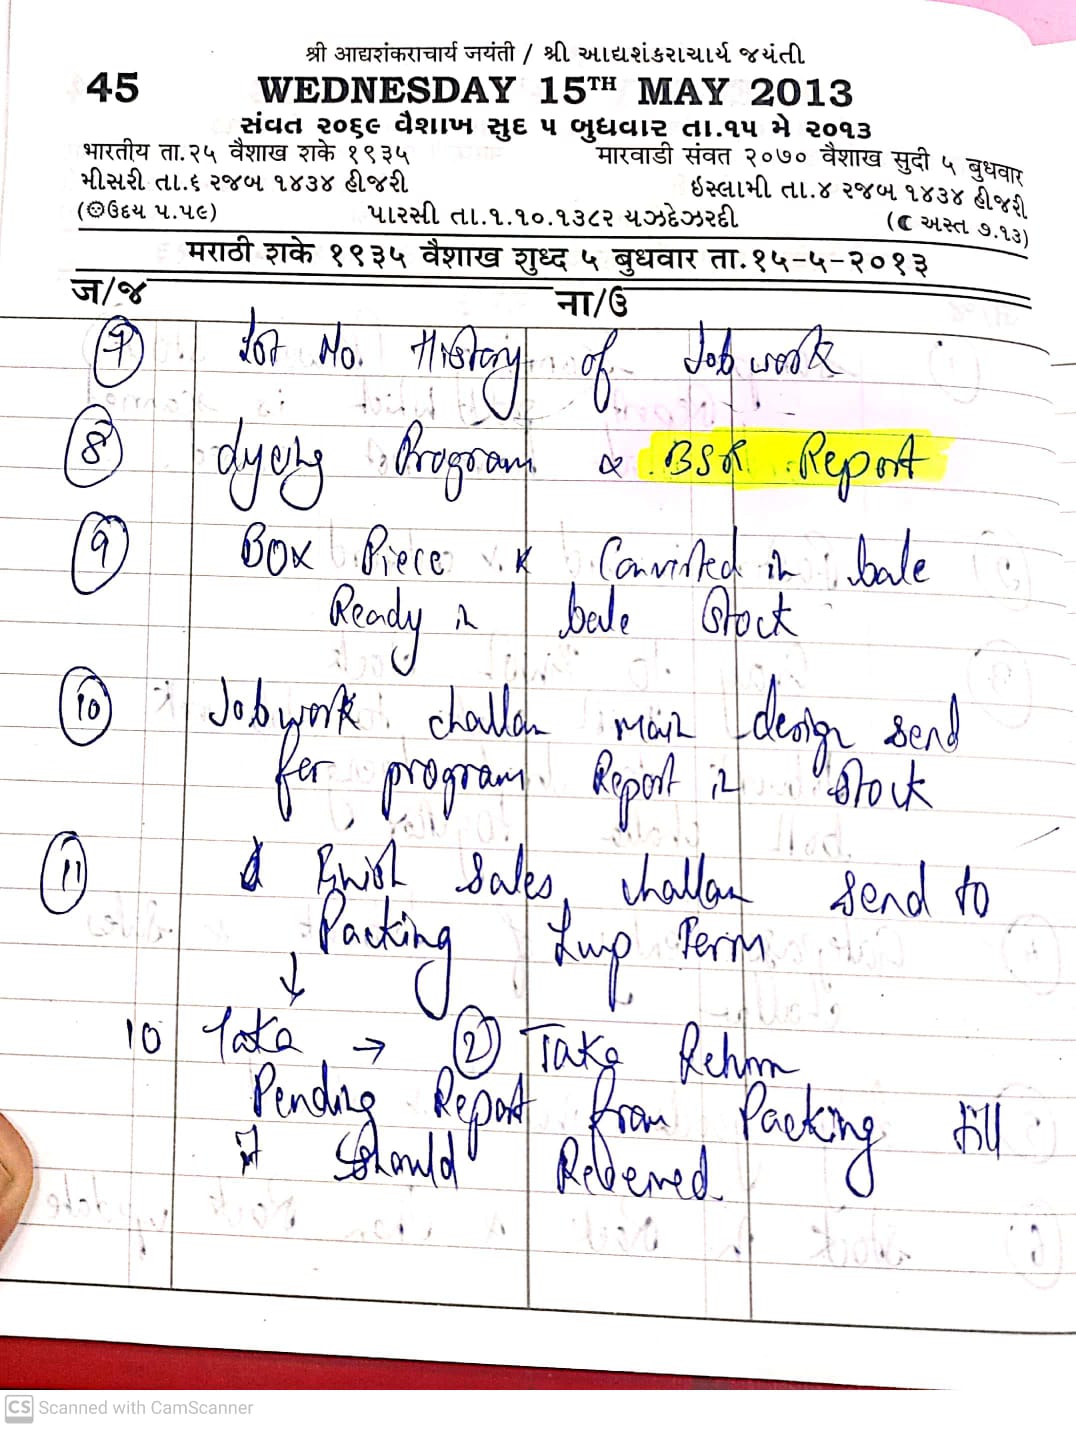 श्री आद्यशंकराचार्य जयंती / શ્રી આદ્યશંકરાચાર્ય જયંતી
45 WEDNESDAY 15TH MAY 2013
સંવત ૨૦૬૯ વૈશાખ સુદ ૫ બુધવાર તા.૧૫ મે ૨૦૧૩
भारतीय ता.२५ वैशाख शके १९३५ मारवाडी संवत २०७० वैशाख सुदी ५ बुधवार
મીસરી તા.૬ રજબ ૧૪૩૪ હીજરી ઇસ્લામી તા.૪ રજબ ૧૪૩૪ હીજરી
(ઉદય ૫.૫૯) પારસી તા.૧.૧૦.૧૩૮૨ યઝદેઝરદી (અસ્ત ૭.૧૩)
मराठी शके १९३५ वैशाख शुध्द ५ बुधवार ता.१५-५-२०१३
ज/જ ना/ઉ
7 Lot No. History of Jobwork
8 dyeing Program & BSR Report
9 BOX Piece Converted in bale
Ready in bale Stock
10 Jobwork challan main design send
for program Report in Stock
11 Finish Sales challan send to
Packing Lump Term
↓
10 Taka → 2 Taka Return
Pending Report from Packing till
it should
CS Scanned with CamScanner